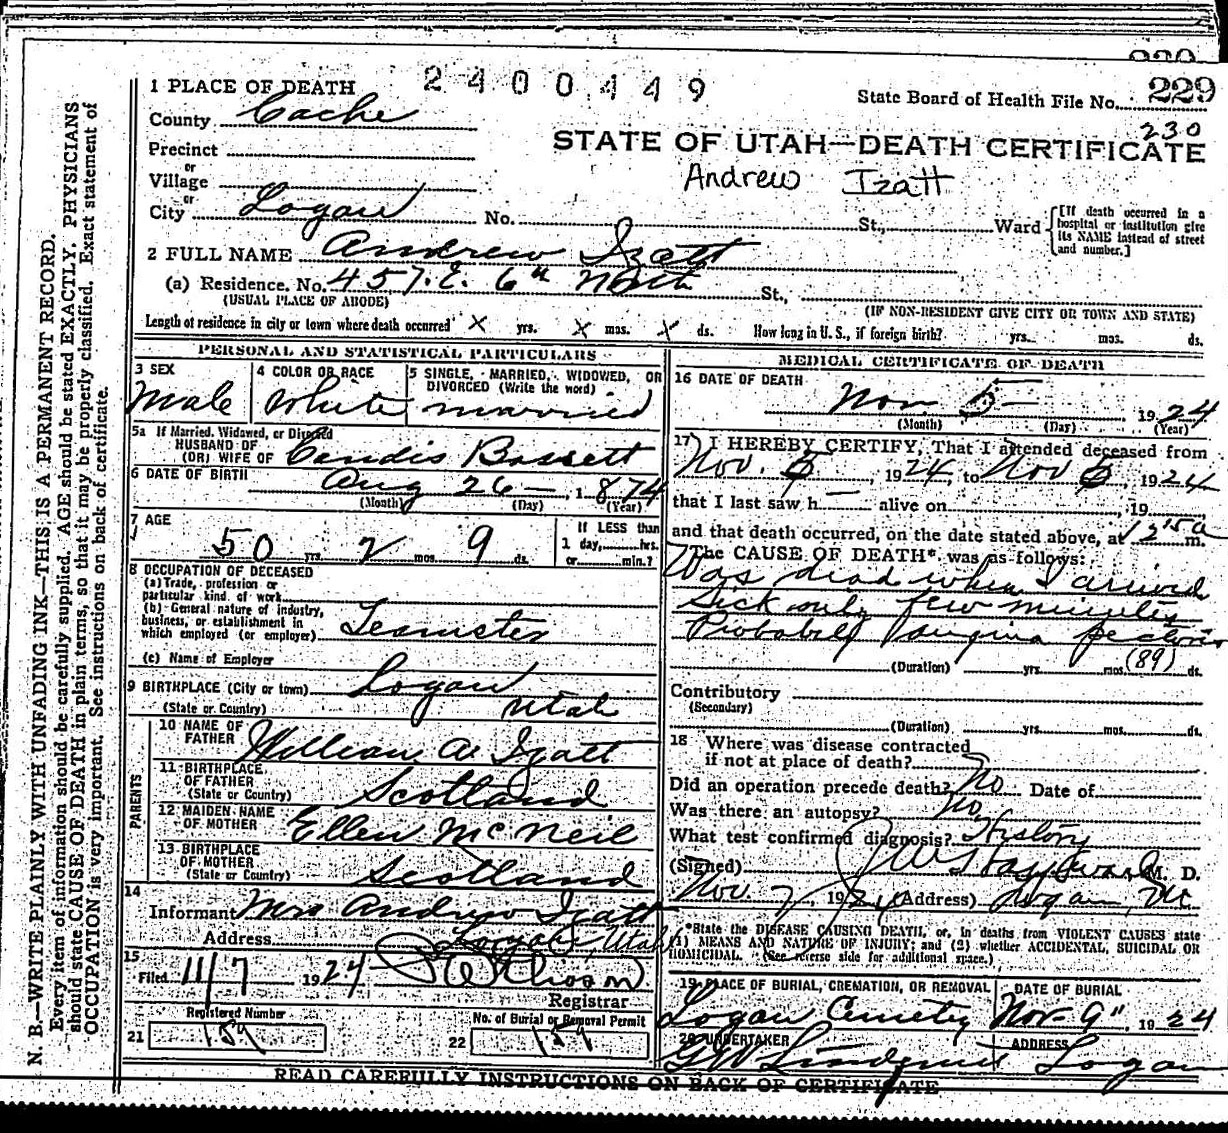 229
2400449
1 PLACE OF DEATH
State Board of Health File No. 229
230
County Cache
STATE OF UTAH—DEATH CERTIFICATE
Precinct
or
Village
Andrew Izatt
or
City Logan No. St., Ward
[If death occurred in a hospital or institution give its NAME instead of street and number.]
2 FULL NAME Andrew Izatt
(a) Residence. No. 457. E. 6th North St.,
(USUAL PLACE OF ABODE) (IF NON-RESIDENT GIVE CITY OR TOWN AND STATE)
Length of residence in city or town where death occurred X yrs. X mos. X ds. How long in U. S., if foreign birth? yrs. mos. ds.
PERSONAL AND STATISTICAL PARTICULARS
3 SEX Male
4 COLOR OR RACE White
5 SINGLE, MARRIED, WIDOWED, OR DIVORCED (Write the word) married
5a If Married, Widowed, or Divorced
HUSBAND OF
(OR) WIFE OF Candis Bassett
6 DATE OF BIRTH Aug 26 — , 1874
(Month) (Day) (Year)
7 AGE
50 yrs. 2 mos. 9 ds.
If LESS than
1 day, hrs.
or min.?
8 OCCUPATION OF DECEASED
(a) Trade, profession or
particular kind of work
(b) General nature of industry,
business, or establishment in
which employed (or employer) Teamster
(c) Name of Employer
9 BIRTHPLACE (City or town) Logan
(State or Country) Utah
PARENTS
10 NAME OF
FATHER William A. Izatt
11 BIRTHPLACE
OF FATHER
(State or Country) Scotland
12 MAIDEN NAME
OF MOTHER Ellen McNeil
13 BIRTHPLACE
OF MOTHER
(State or Country) Scotland
14
Informant Mrs Andrew Izatt
Address Logan, Utah
15
Filed 11/7 1924
Registrar
Registered Number
21 159
No. of Burial or Removal Permit
22 159
MEDICAL CERTIFICATE OF DEATH
16 DATE OF DEATH
Nov 5— 1924
(Month) (Day) (Year)
17 I HEREBY CERTIFY, That I attended deceased from
Nov. 5, 1924, to Nov 5, 1924
that I last saw h— alive on , 19
and that death occurred, on the date stated above, at 1215a m.
The CAUSE OF DEATH* was as follows:
Was dead when I arrived
Sick only few minutes
Probably angina pectoris
(89)
(Duration) yrs. mos. ds.
Contributory
(Secondary)
(Duration) yrs. mos. ds.
18 Where was disease contracted
if not at place of death?
Did an operation precede death? No Date of
Was there an autopsy? No
What test confirmed diagnosis? History
(Signed) M. D.
Nov. 7, 1924 (Address) Logan, Ut
*State the DISEASE CAUSING DEATH, or, in deaths from VIOLENT CAUSES state
(1) MEANS AND NATURE OF INJURY; and (2) whether ACCIDENTAL, SUICIDAL OR
HOMICIDAL. (See reverse side for additional space.)
19 PLACE OF BURIAL, CREMATION, OR REMOVAL
Logan Cemetery
DATE OF BURIAL
Nov 9", 1924
20 UNDERTAKER
G W Lindquist
ADDRESS
Logan
READ CAREFULLY INSTRUCTIONS ON BACK OF CERTIFICATE
N. B.—WRITE PLAINLY WITH UNFADING INK—THIS IS A PERMANENT RECORD.
Every item of information should be carefully supplied. AGE should be stated EXACTLY. PHYSICIANS
should state CAUSE OF DEATH in plain terms, so that it may be properly classified. Exact statement of
OCCUPATION is very important. See instructions on back of certificate.